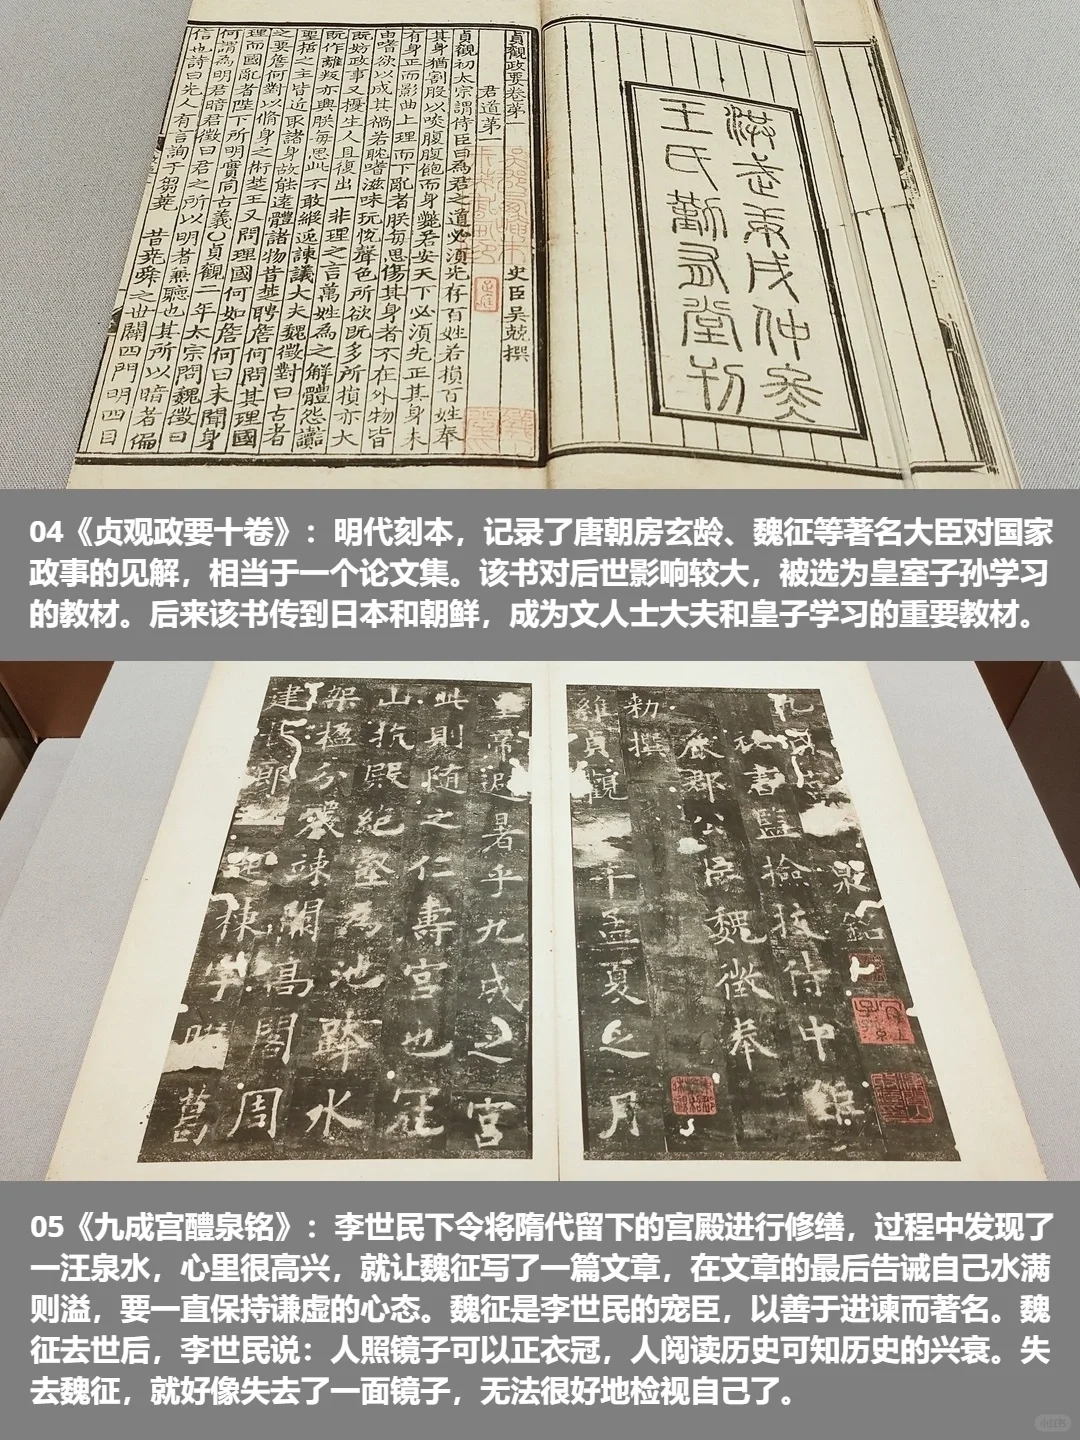 洪武庚戌仲冬
王氏勤有堂刊
貞觀政要卷第一
史臣吳兢撰
君道第一
貞觀初太宗謂侍臣曰為君之道必須先存百姓若損百姓奉
其身猶割股以啖腹腹飽而身斃若安天下必須先正其身未
有身正而影曲上理而下亂者朕每思傷其身者不在外物皆
由嗜欲以成其禍若耽嗜滋味玩悅聲色所欲既多所損亦大
既妨政事又擾生人且復出一非理之言萬姓為之解體怨讟
既作離叛亦興朕每思此不敢縱逸諫議大夫魏徵對曰古者
聖哲之主皆近取諸身故能遠體諸物昔楚聘詹何問其理國
之要詹何對以脩身之術楚王又問理國何如詹何曰未聞身
理而國亂者陛下所明實同古義 貞觀二年太宗問魏徵曰
何謂為明君暗君徵曰君之所以明者兼聽也其所以暗者偏
信也詩曰先人有言詢于芻蕘 昔堯舜之世闢四門明四目
04《贞观政要十卷》：明代刻本，记录了唐朝房玄龄、魏征等著名大臣对国家
政事的见解，相当于一个论文集。该书对后世影响较大，被选为皇室子孙学习
的教材。后来该书传到日本和朝鲜，成为文人士大夫和皇子学习的重要教材。
九成宮泉銘
秘書監檢校侍中鉅
鹿郡公臣魏徵奉
勑撰
維貞觀年孟夏之月
皇帝避暑乎九成之宮
此則隨之仁壽宮也冠
山抗殿絕壑為池跨水
架楹分巖竦闕高閣周
建長廊四起棟宇膠葛
05《九成宫醴泉铭》：李世民下令将隋代留下的宫殿进行修缮，过程中发现了
一汪泉水，心里很高兴，就让魏征写了一篇文章，在文章的最后告诫自己水满
则溢，要一直保持谦虚的心态。魏征是李世民的宠臣，以善于进谏而著名。魏
征去世后，李世民说：人照镜子可以正衣冠，人阅读历史可知历史的兴衰。失
去魏征，就好像失去了一面镜子，无法很好地检视自己了。
小红书